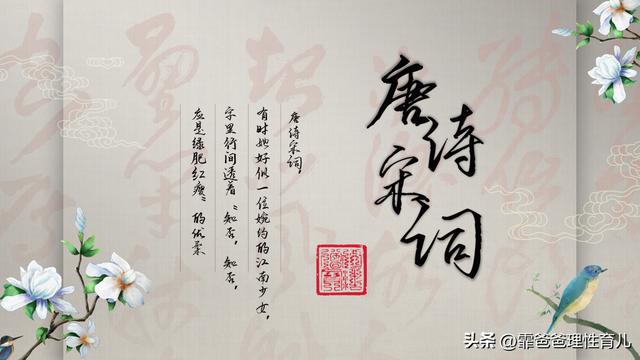 唐诗宋词
唐诗宋词,
有时她好似一位婉约的江南少女,
字里行间透着“知否,知否,
应是绿肥红瘦”的优柔
头条 @霏爸爸理性育儿